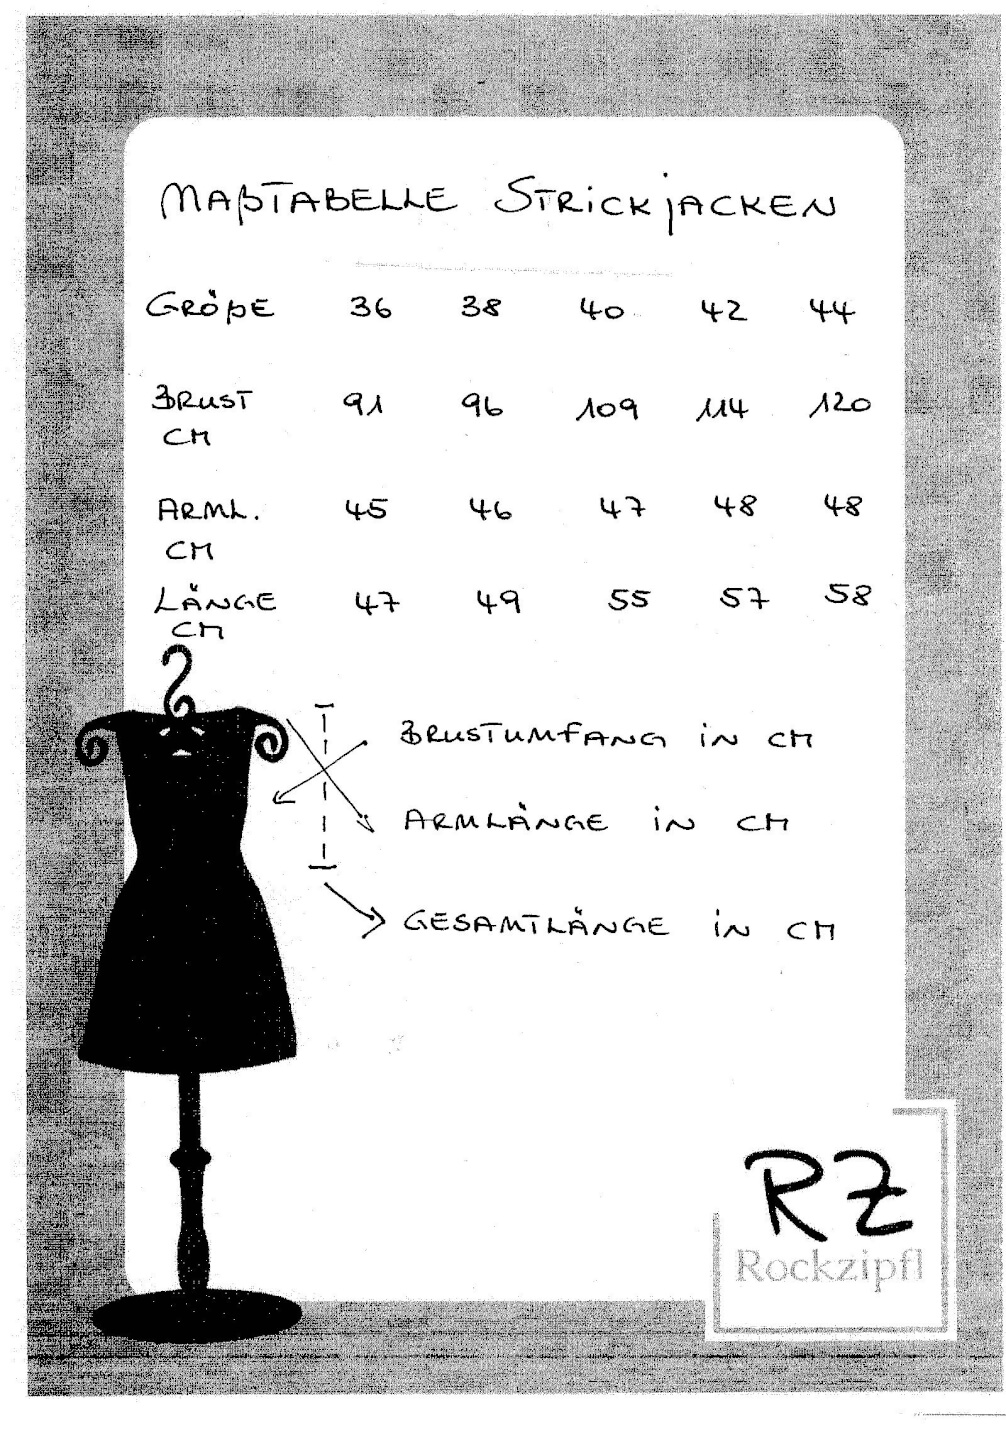 MAßTABELLE STRICKJACKEN
GRÖßE 36 38 40 42 44
BRUST 91 96 109 114 120
CM
ARML. 45 46 47 48 48
CM
LÄNGE 47 49 55 57 58
CM
BRUSTUMFANG IN CM
ARMLÄNGE IN CM
GESAMTLÄNGE IN CM
RZ
Rockzipfl